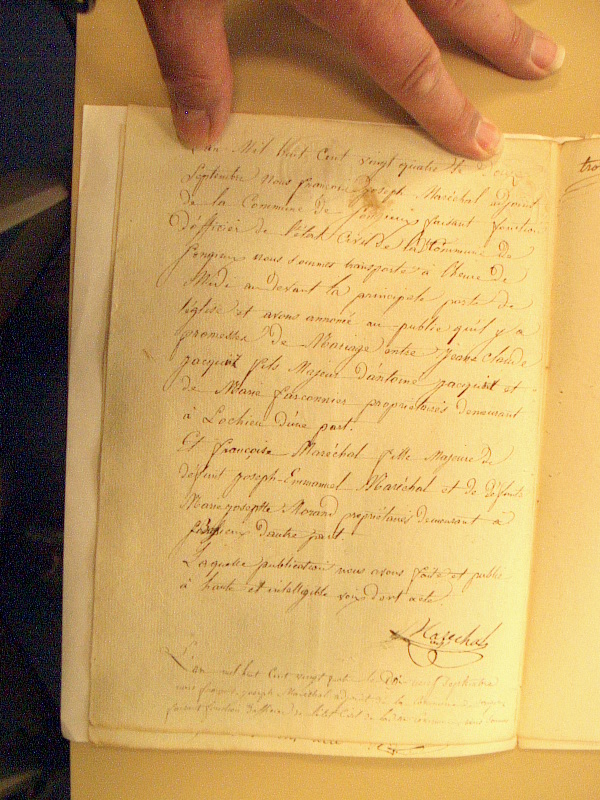 L'an Mil huit Cent vingt quatre le Douze
Septembre Nous françois Joseph Maréchal adjoint
de la Commune de Songieu faisant fonction
d'officier de l'état Civil de la Commune de
Songieu nous sommes transporté à l'heure de
Midi au devant la principale porte de
l'église et avons annoncé au public qu'il y a
promesse De Mariage entre Jean Claude
Jacquet fils Majeur D'antoine Jacquet et
de Marie farconnier propriétaires demeurant
à Lochieu D'une part.
Et françoise Maréchal fille Majeure de
défunt Joseph-Emmanuel Maréchal et de défunte
Marie josephte Morand propriétaires demeurant à
Songieu D'autre part
Laquelle publication nous avons faite et publié
à haute et intelligible voix dont acte.
Marechal
L'an mil huit Cent vingt quatre le Dix neuf septembre
nous françois joseph Maréchal adjoint de la commune de
faisant fonction de l'état Civil de